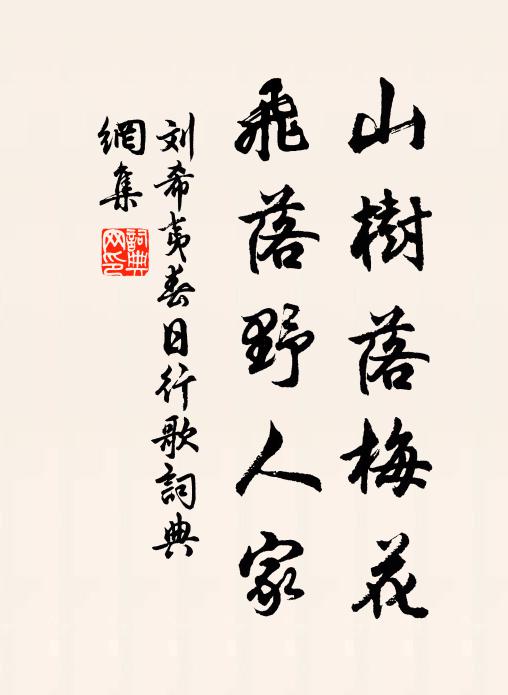 山樹落梅花
飛落野人家
刘希夷春日行歌詞典
網集
詞典網印